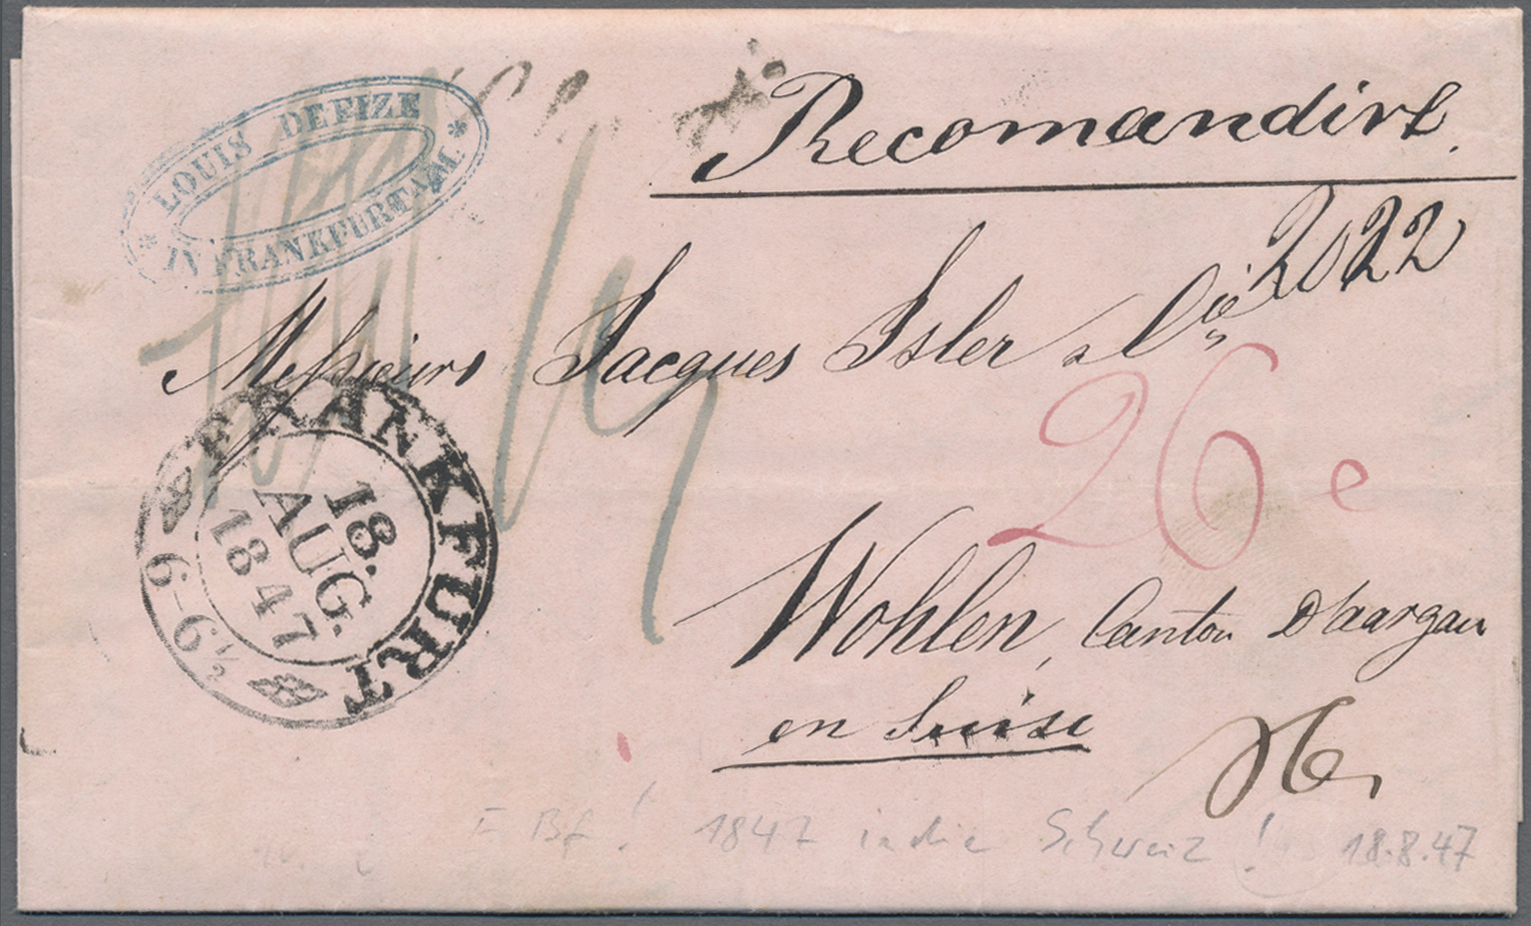 LOUIS DEFIZE
* IN FRANKFURT A/M. *
Recomandirt.
2022
Messieurs Jacques Isler & Cie
26 e
FRANKFURT
18.
AUG.
1847
6-6½
Wohlen, Canton D'aargau
en Suisse
Bf! 1847 in die Schweiz! 18.8.47